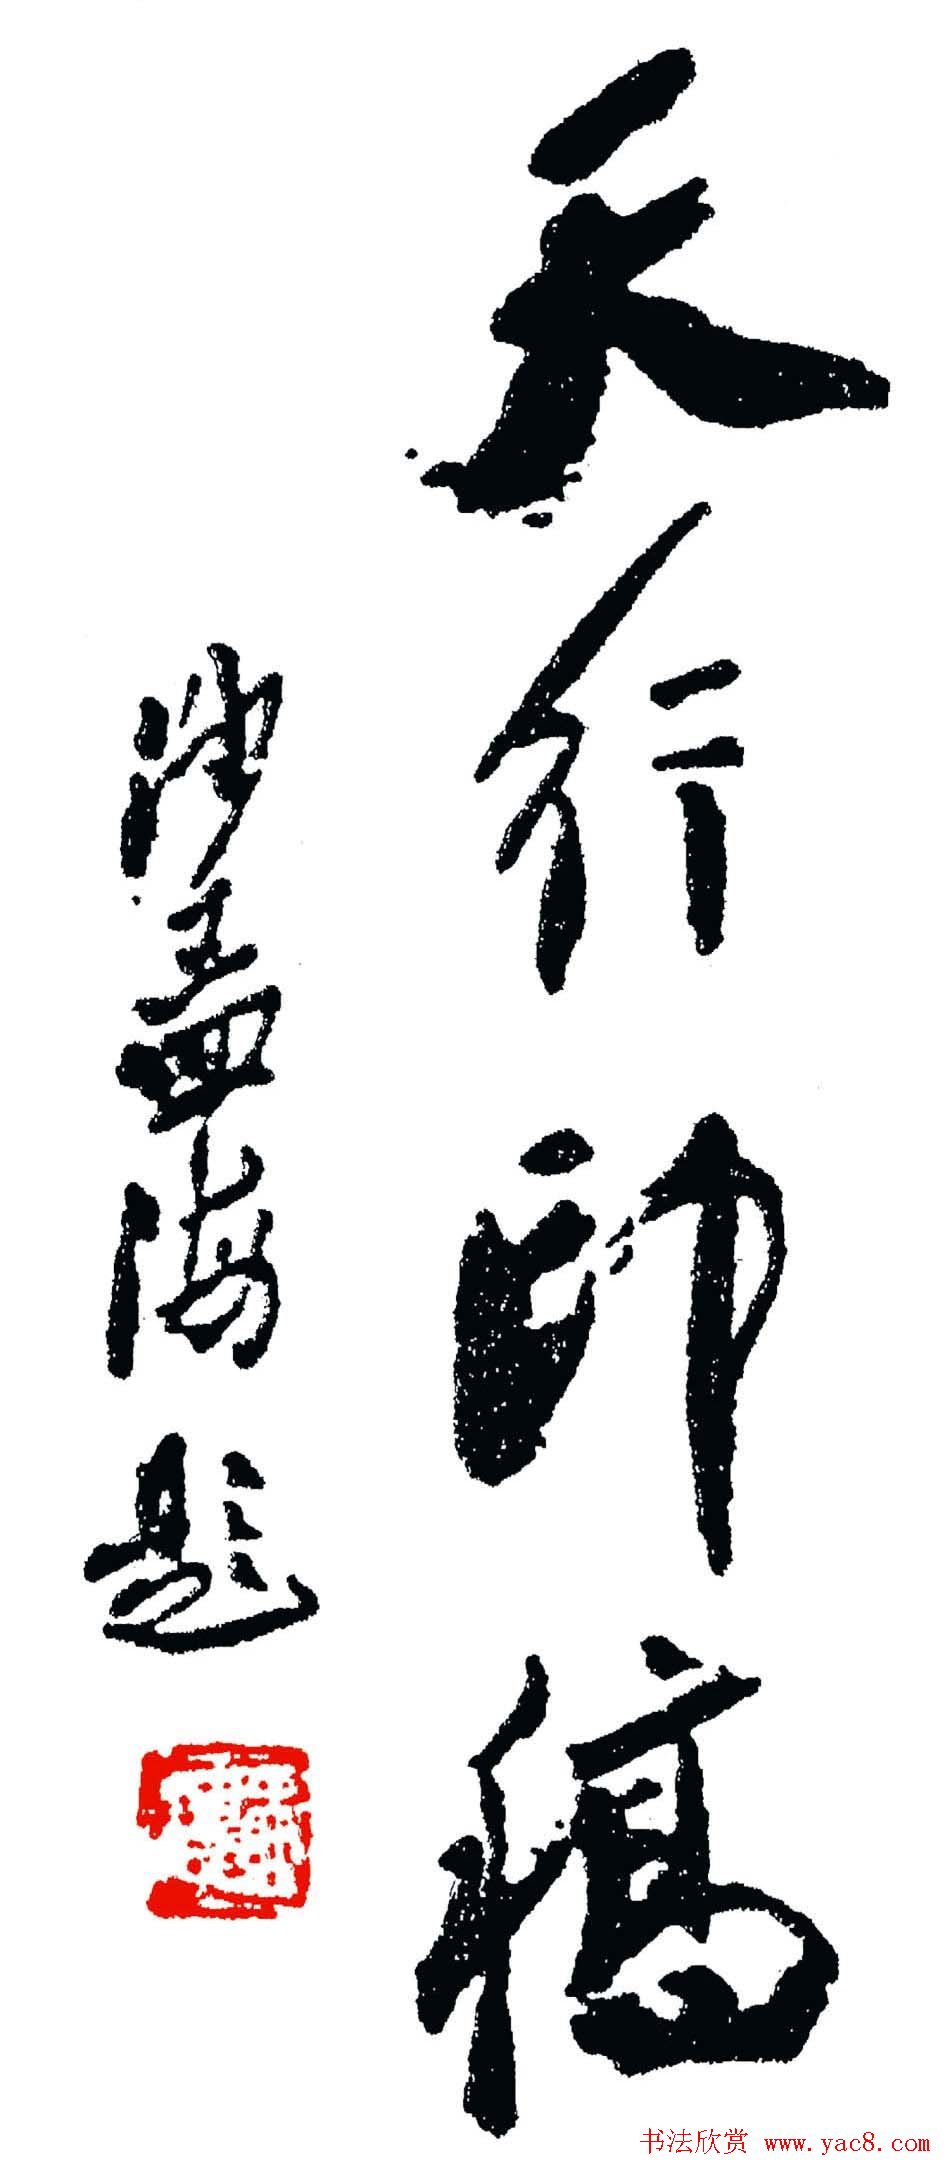 天行印稿
沙孟海題
书法欣赏 www.yac8.com